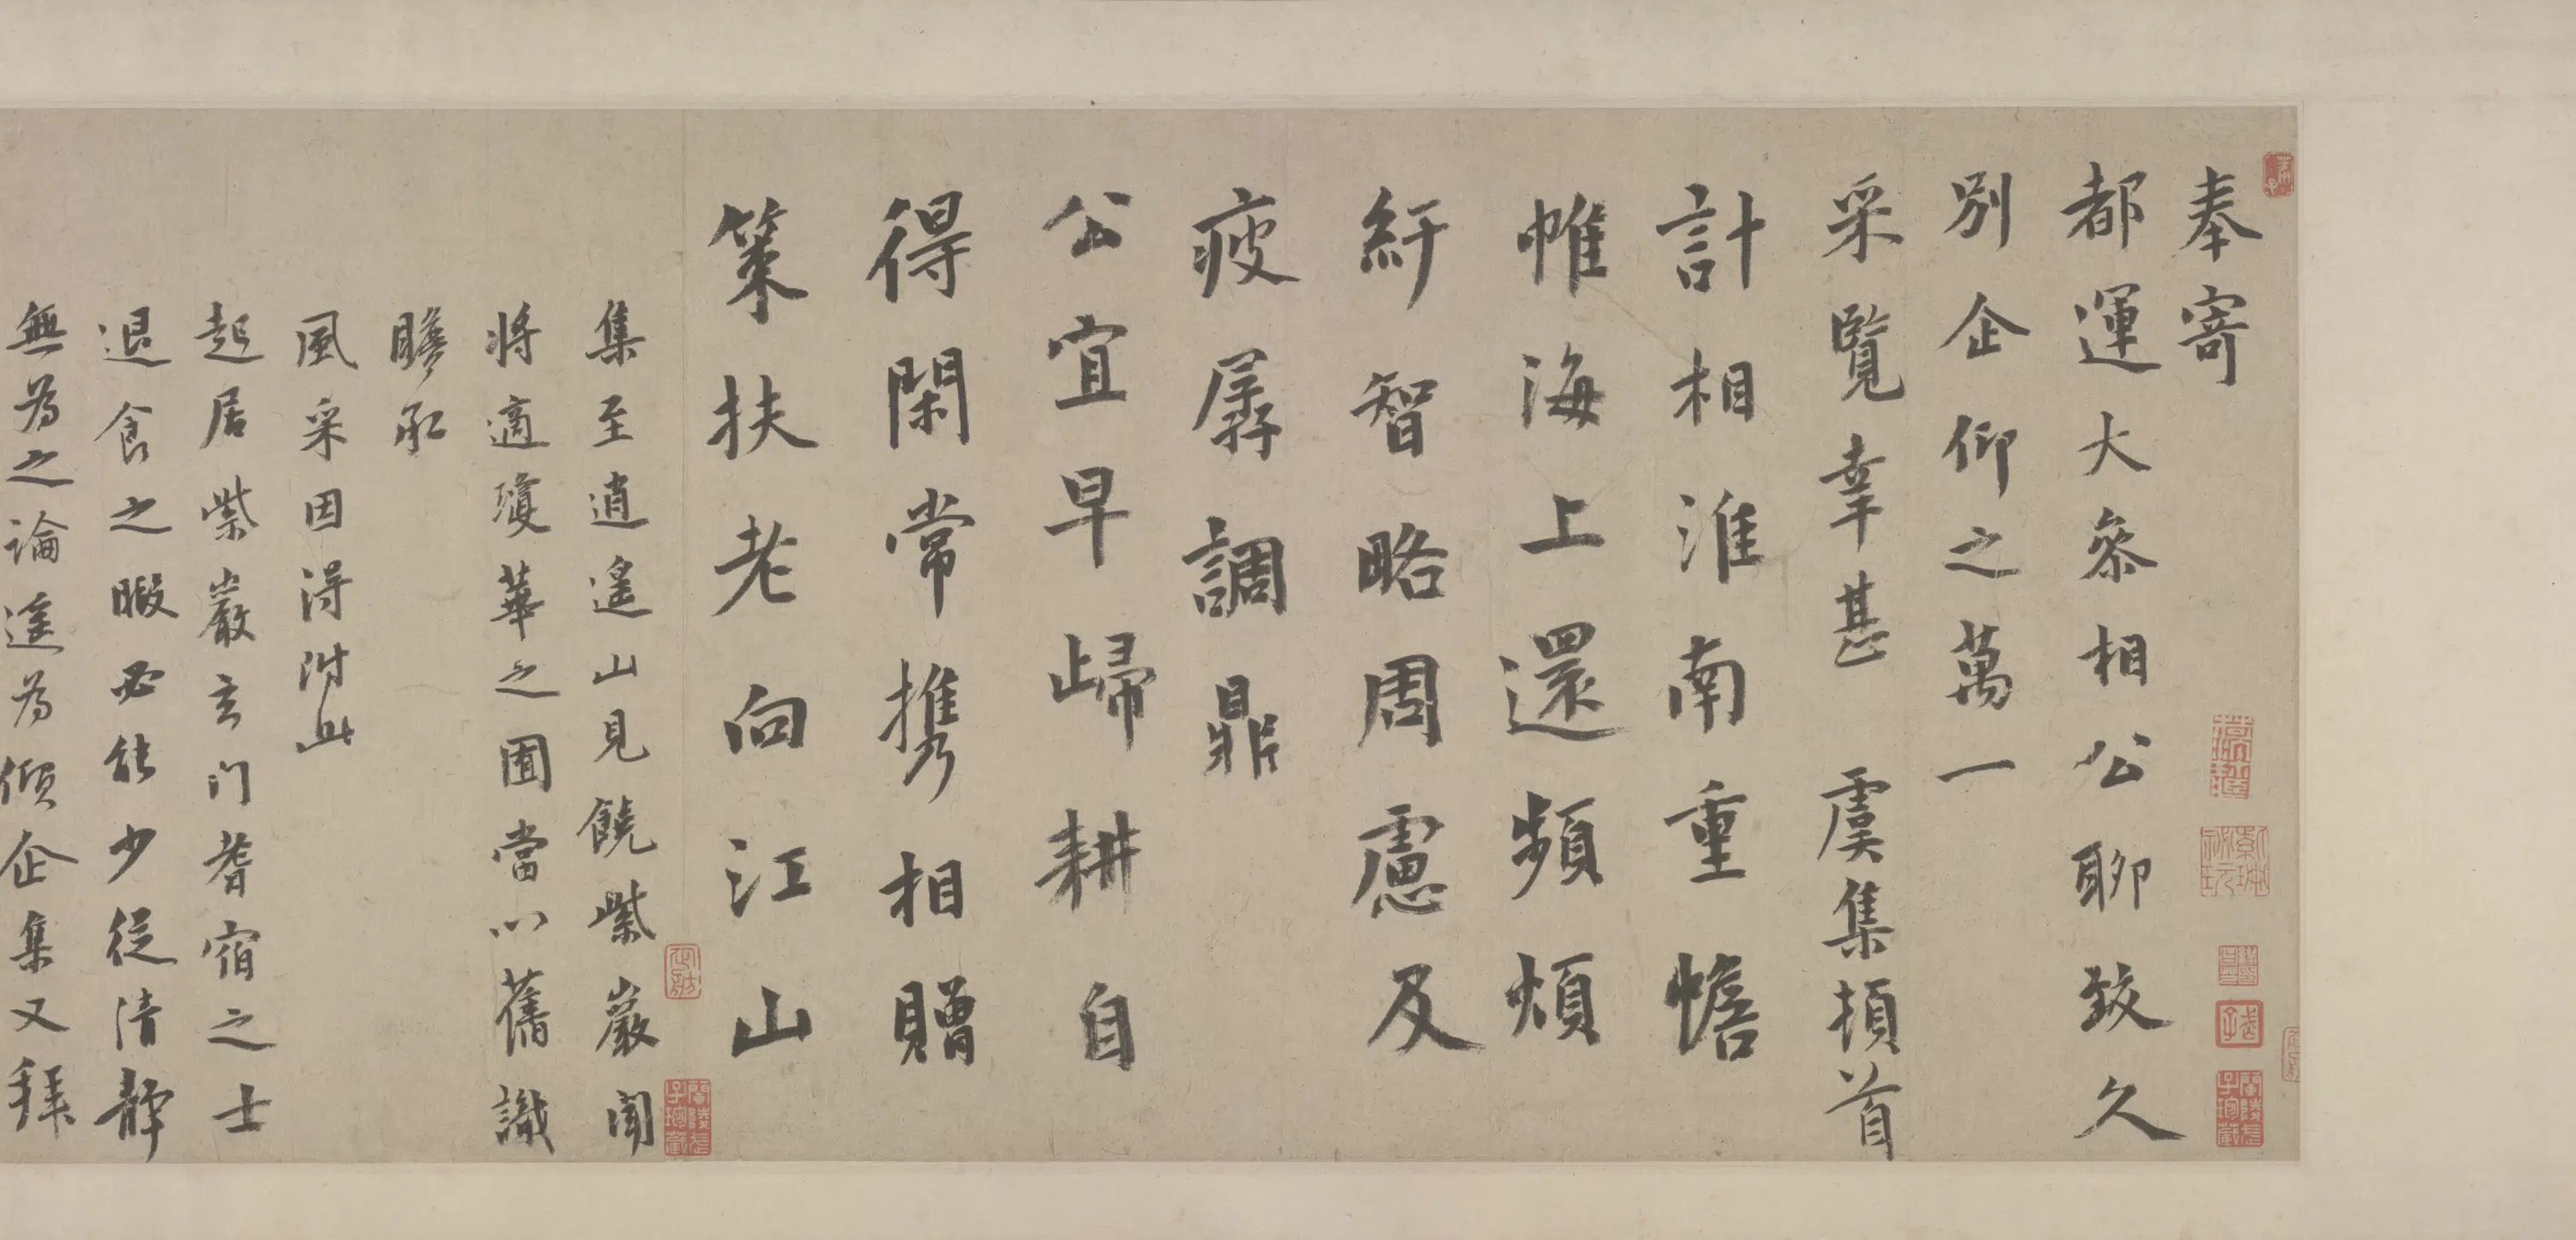 奉寄
都運大叅相公聊致久
別企仰之萬一
采覽幸甚 虞集頓首
計相淮南重幨
帷海上還頻煩
紆智略周慮及
疲孱調鼎
公宜早歸耕自
得閑常携相贈
策扶老向江山
集至逍遙山見饒紫巖聞
將適瓊華之圃當以舊識
瞻承
風采因得附此
起居紫巖玄门耆宿之士
退食之暇必能少從清靜
無為之論遙為傾企集又拜